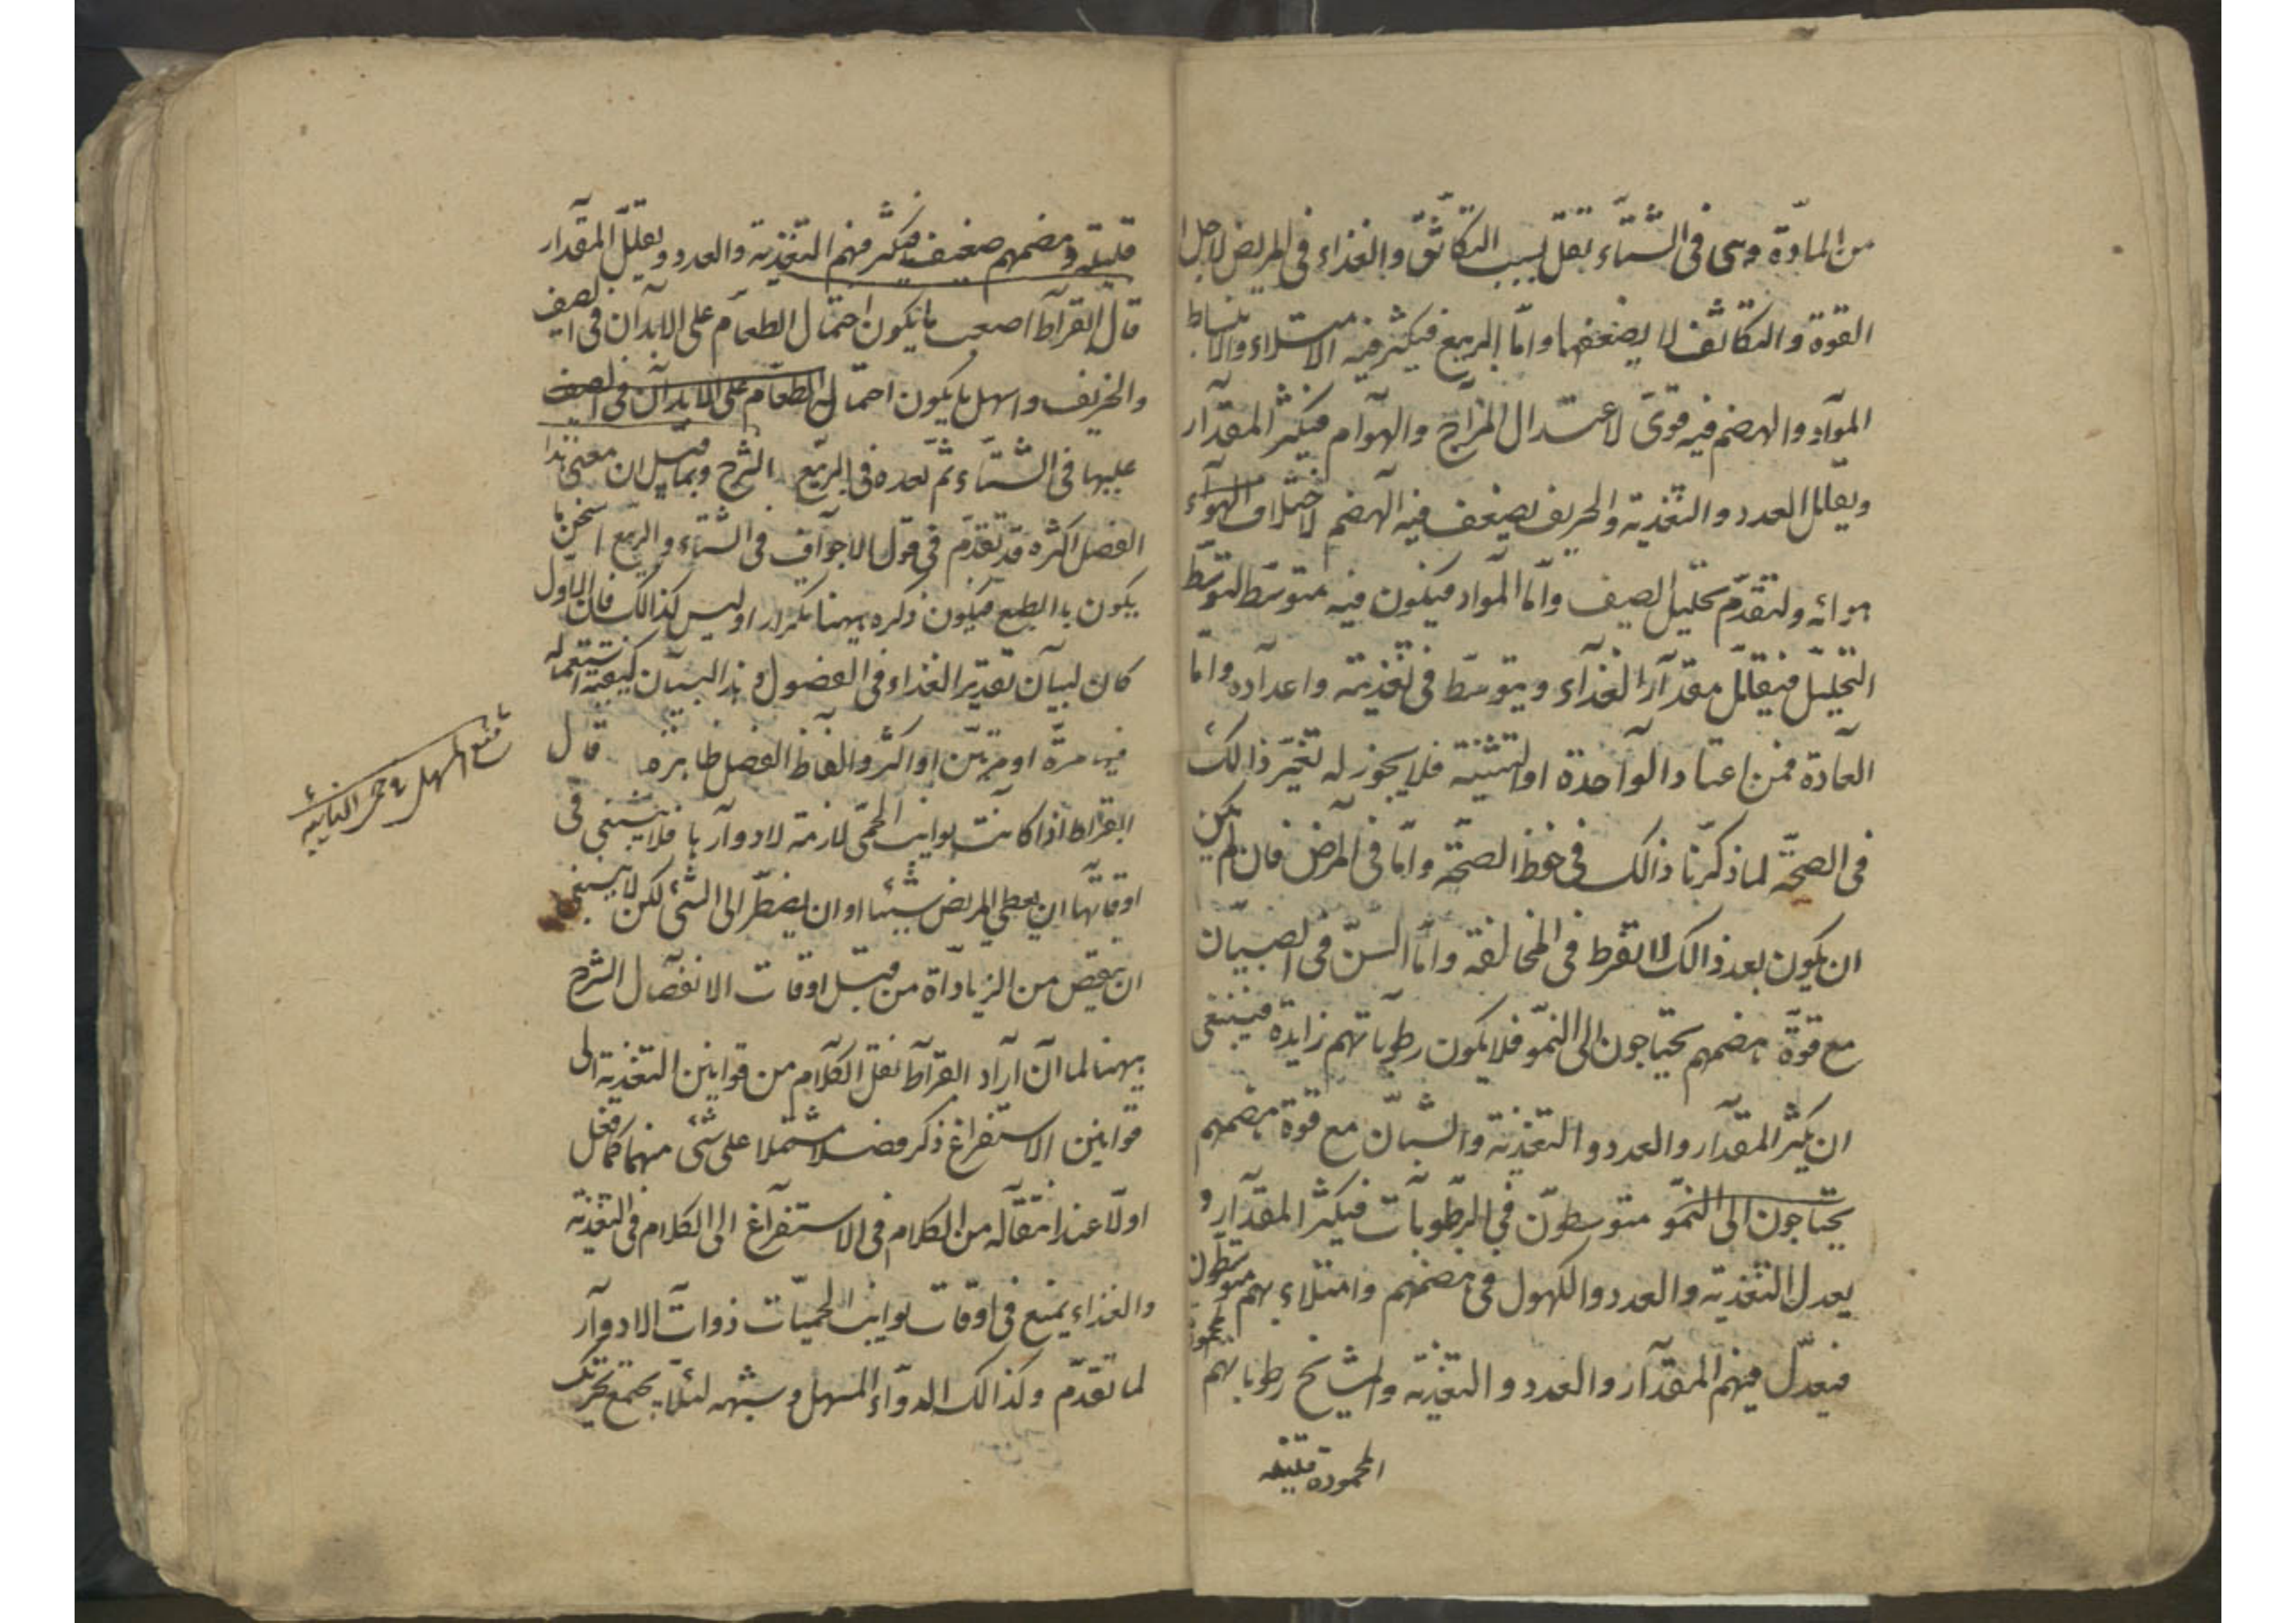 من المادة وهى فى الشتاء تقل بسبب التكاثف والغذاء فى المريض لاجل
القوة والتكاثف لا يضعفها واما الربيع فيكثر فيه الامتلاء والانبساط
المواد والهضم فيه قوى لاعتدال المزاج والهوآم فيكثر المقدار
ويقلل العدد والتغذية والخريف يضعف فيه الهضم لاختلاف الهوآء
هوائه ولتقدم تحليل الصيف واما المواد فيكون فيه متوسط لتوسط
التحليل فيقلل مقدار الغذاء ويتوسط فى تغذيته واعداده واما
العادة فمن اعتاد الواحدة او التثنية فلا يجوز له تغير ذالك
فى الصحة لما ذكرنا ذالك فى حفظ الصحة واما فى المرض فان لم يكن
ان يكون بعد ذالك لا تفرط فى المخالفة واما السن فى الصبيان
مع قوة هضمهم يحتاجون الى النمو فلا يكون رطوباتهم زايدة فينبغى
ان يكثر المقدار والعدد والتغذية والشبان مع قوة هضمهم
يحتاجون الى النمو متوسطون فى الرطوبات فيكثر المقدار و
يعدل التغذية والعدد والكهول فى هضمهم وامتلاءهم متوسطون
فيعدل فيهم المقدار والعدد والتغذية والمشايخ رطوباتهم
المحمودة قليلة
قليلة وهضمهم ضعيف فيكثر فيهم التغذية والعدد ويقلل المقدار
قال ابقراط اصعب ما يكون احتمال الطعام على الابدان فى الصيف
والخريف واسهل ما يكون احتمال الطعام على الابدان فى الصيف
عليها فى الشتاء ثم بعده فى الربيع الشرح وبما قيل ان معنى هذا
الفصل اكثره قد تقدم فى قوله الاجواف فى الشتاء والربيع اسخن ما
يكون بالطبع فيكون ذكره ههنا تكرار اوليس كذالك فان الاول
كان لبيان تقدير الغذاء فى الفصول وهذا لبيان كيفية استعماله
فيه مرة او مرتين او اكثر والفاظ الفصل ظاهرة قال
ابقراط اذا كانت نوايب الحمى لازمة لادوارها فلا ينبغى فى
اوقاتها ان يعطى المريض شيئا او ان يضطر الى الشى لكن ينبغى
ان ينقص من الزيادة من قبل اوقات الانفصال الشرح
ههنا لما ان اراد ابقراط نقل الكلام من قوانين التغذية الى
قوانين الاستفراغ ذكر فصلا مشتملا على شى منهما كما فعل
اولا عند انتقاله من الكلام فى الاستفراغ الى الكلام فى التغذية
والغذاء يمنع فى اوقات نوايب الحميات ذوات الادوار
لما تقدم وكذالك الدواء المسهل وشبهه لئلا يجتمع تحريك